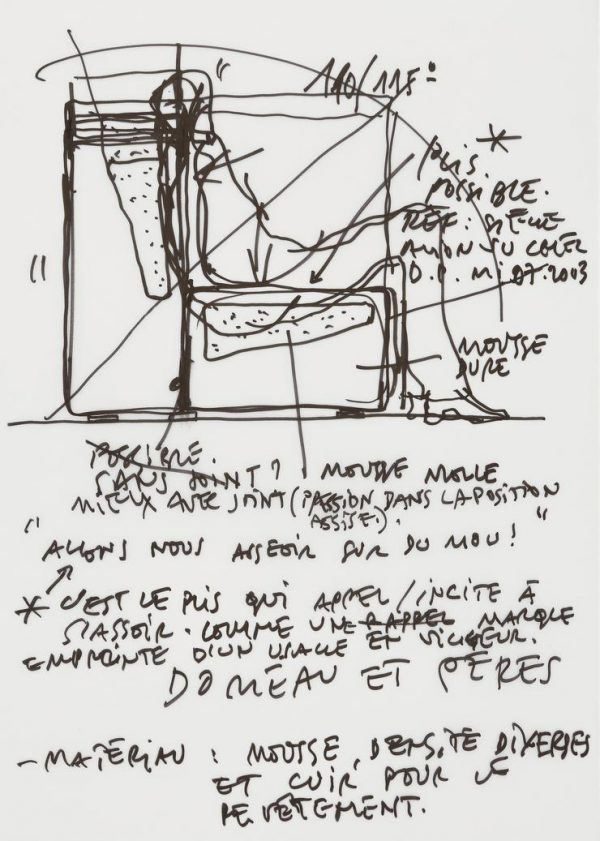 110/115°
*
PLIS
POSSIBLE.
RÉF: SIÈGE
D.P. MI 07.2003
MOUSSE
DURE
POSSIBLE.
SANS JOINT? MOUSSE MOLLE
MIEUX AVEC JOINT (PASSION DANS LA POSITION
ASSISE).
" ALLONS NOUS ASSEOIR SUR DU MOU! "
* C'EST LE PLIS QUI APPEL/INCITE À
S'ASSOIR. COMME UNE RAPPEL MARQUE
EMPREINTE D'UN USAGE EN VIGUEUR.
DOMEAU ET PÉRÈS
- MATÉRIAU : MOUSSE, DENSITÉ DIVERSES
ET CUIR POUR LE
REVÊTEMENT.